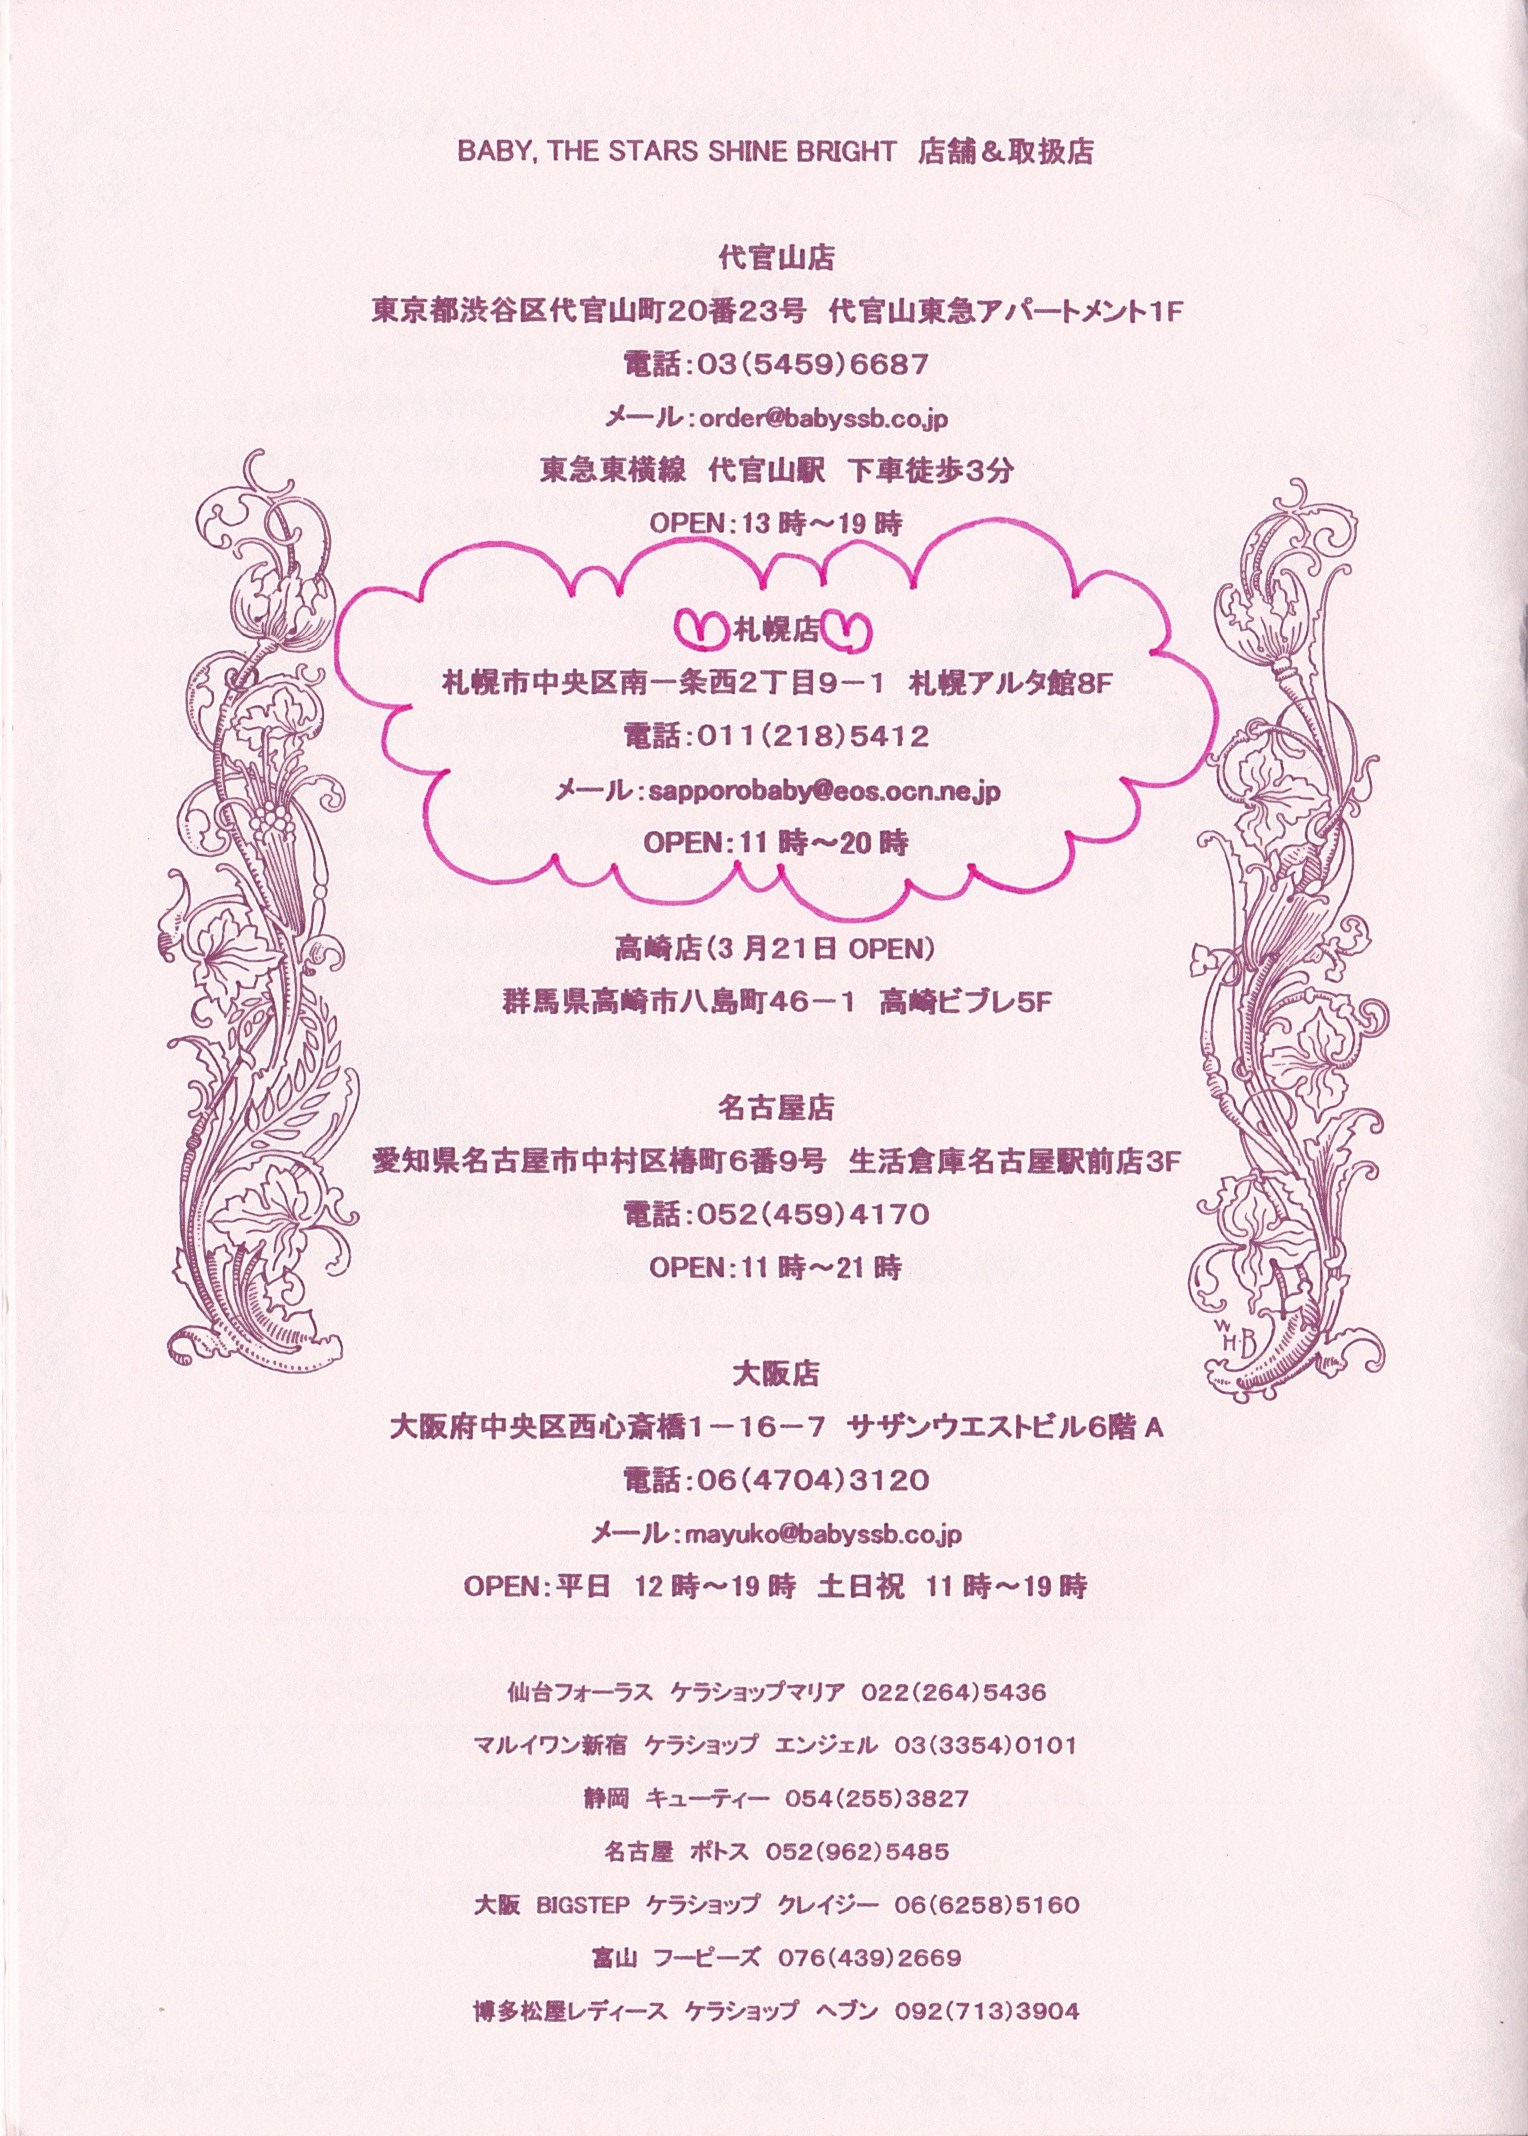 BABY, THE STARS SHINE BRIGHT 店舗＆取扱店
代官山店
東京都渋谷区代官山町20番23号 代官山東急アパートメント1F
電話：03(5459)6687
メール：order@babyssb.co.jp
東急東横線 代官山駅 下車徒歩3分
OPEN：13時～19時
札幌店
札幌市中央区南一条西2丁目9－1 札幌アルタ館8F
電話：011(218)5412
メール：sapporobaby@eos.ocn.ne.jp
OPEN：11時～20時
高崎店(3月21日 OPEN)
群馬県高崎市八島町46－1 高崎ビブレ5F
名古屋店
愛知県名古屋市中村区椿町6番9号 生活倉庫名古屋駅前店3F
電話：052(459)4170
OPEN：11時～21時
W
H.B
大阪店
大阪府中央区西心斎橋1－16－7 サザンウエストビル6階A
電話：06(4704)3120
メール：mayuko@babyssb.co.jp
OPEN：平日 12時～19時 土日祝 11時～19時
仙台フォーラス ケラショップマリア 022(264)5436
マルイワン新宿 ケラショップ エンジェル 03(3354)0101
静岡 キューティー 054(255)3827
名古屋 ポトス 052(962)5485
大阪 BIGSTEP ケラショップ クレイジー 06(6258)5160
富山 フーピーズ 076(439)2669
博多松屋レディース ケラショップ ヘブン 092(713)3904